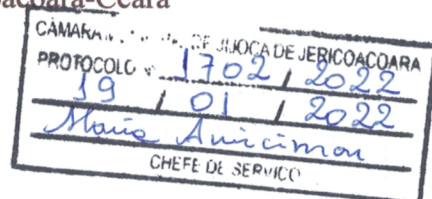 acoara-Ceará
CÂMARA DE JIJOCA DE JERICOACOARA
PROTOCOLO 1702 / 2022
19 / 01 / 2022
Maria
CHEFE DE SERVIÇO